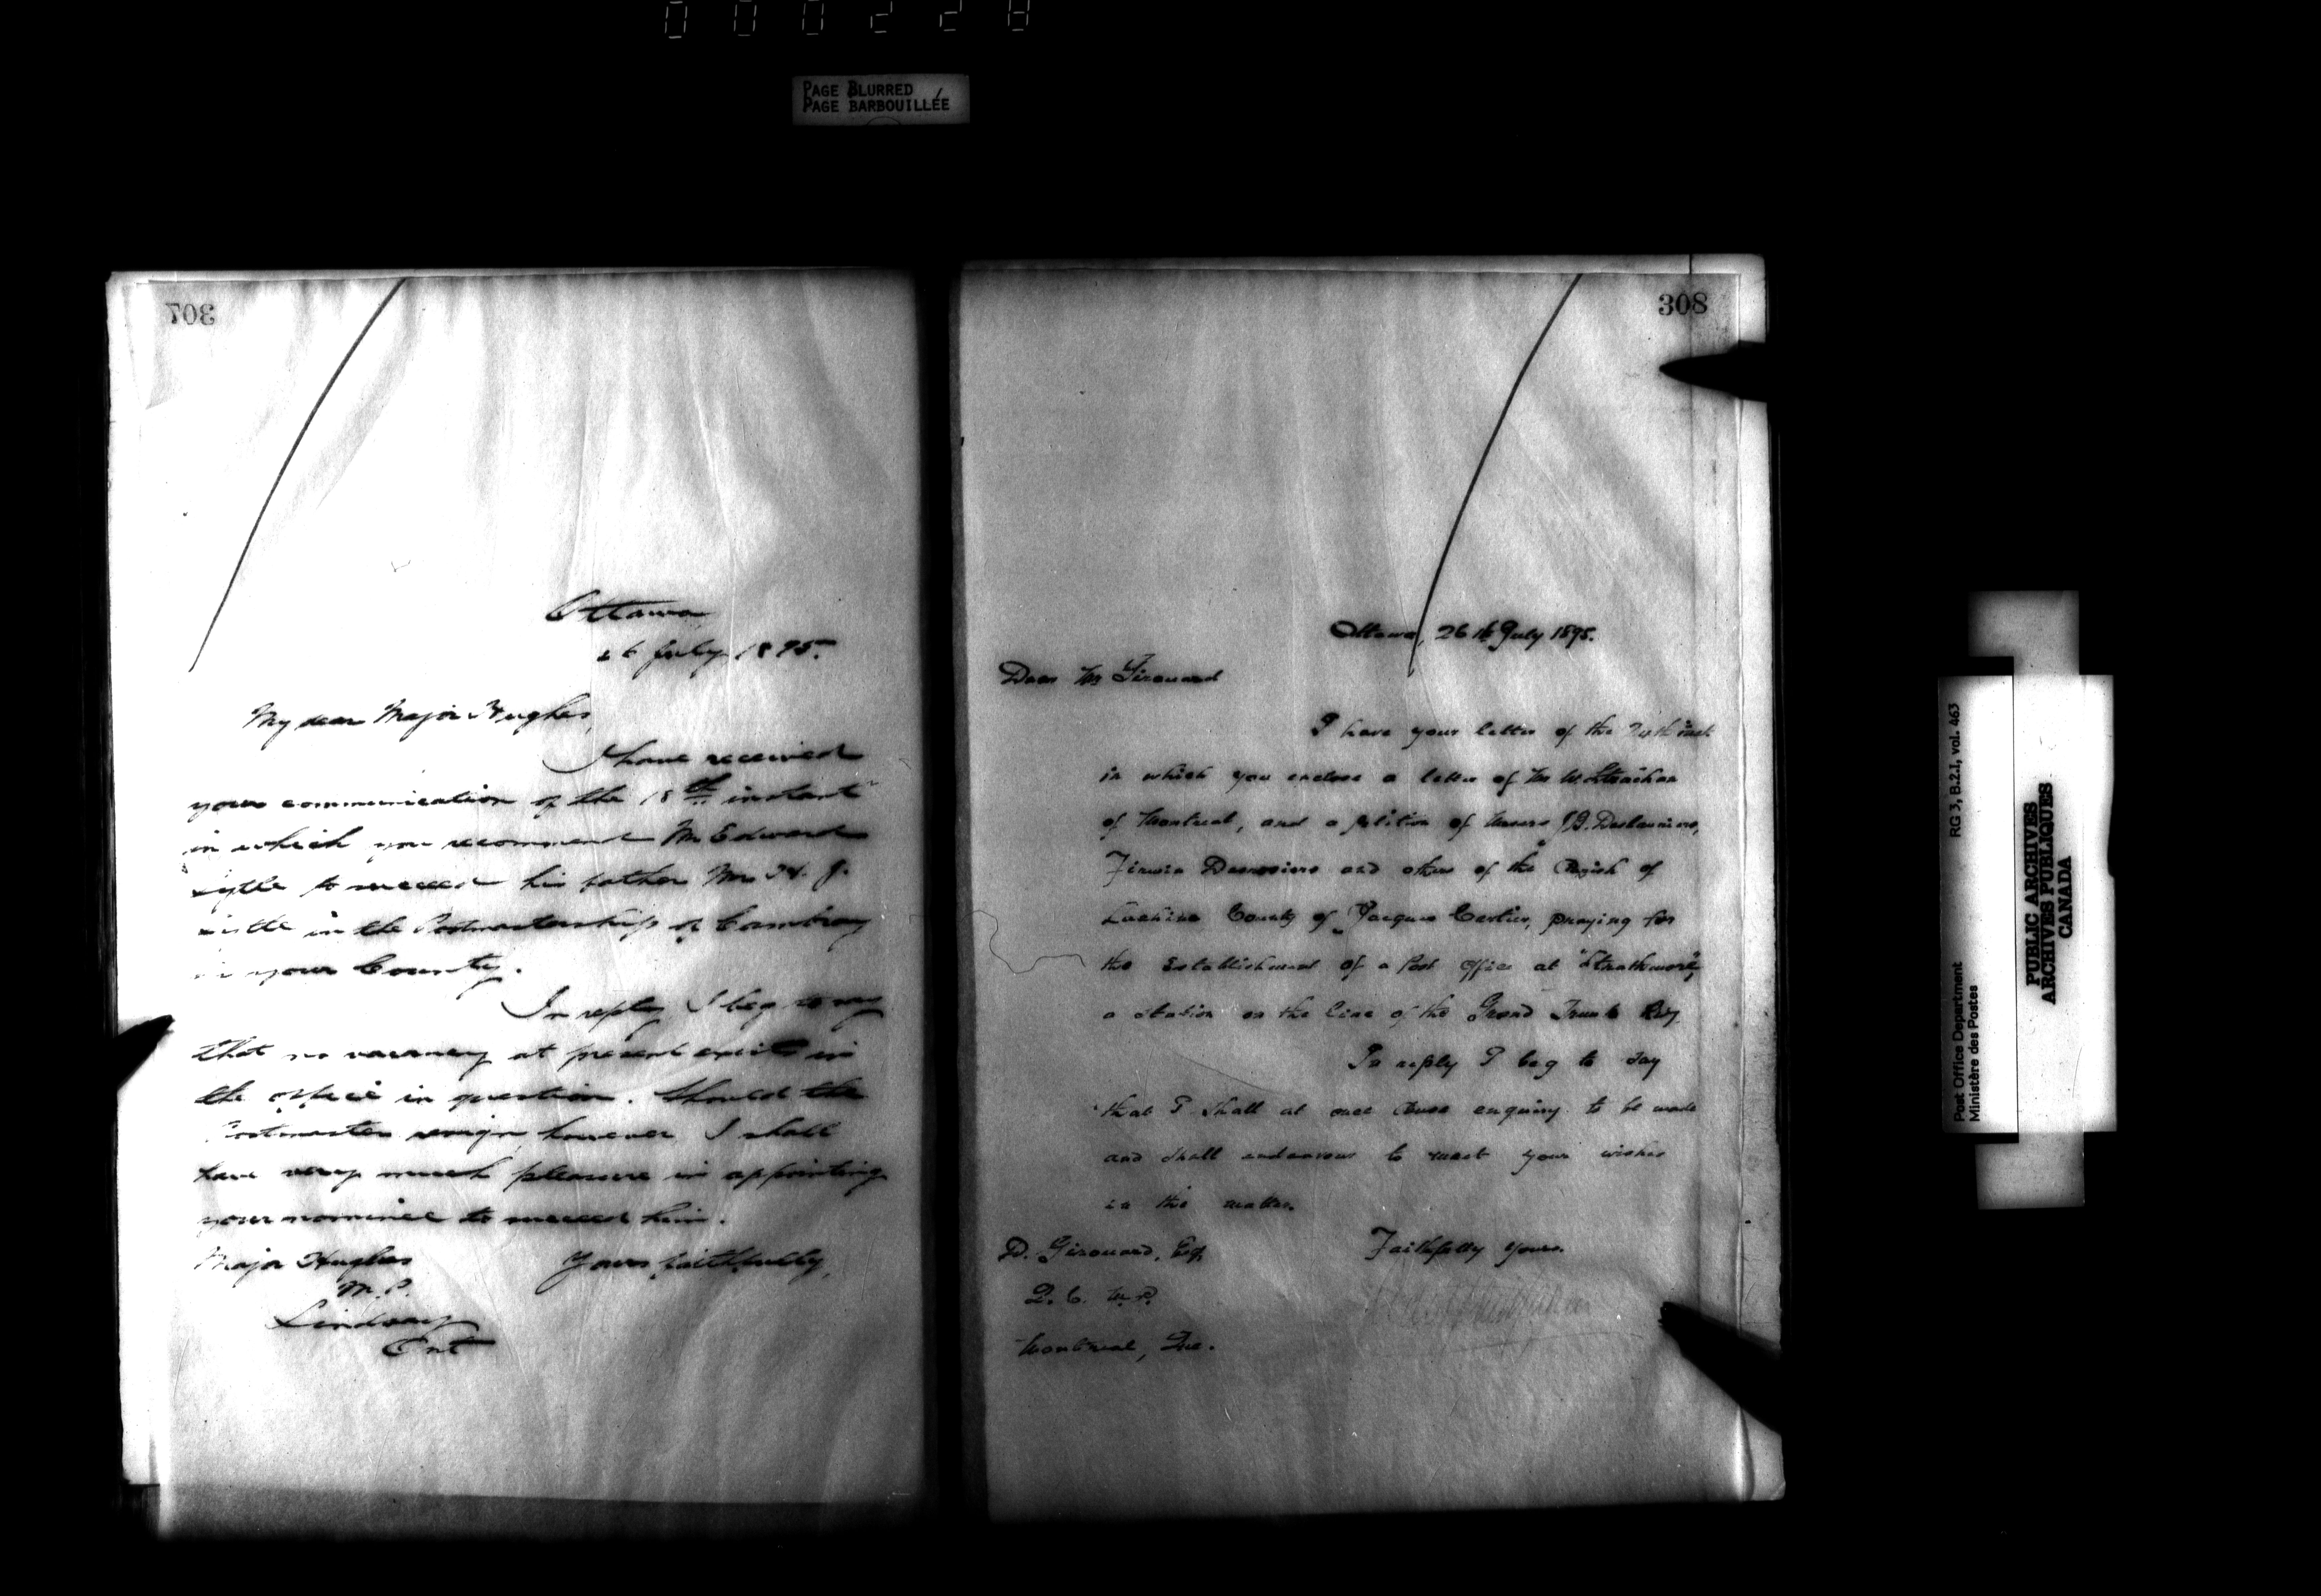 000228
PAGE BLURRED
PAGE BARBOUILLÉE
307
Ottawa
26 July 1895.
My dear Major Hughes,
I have received
your communication of the 18th instant
in which you recommend Mr Edward
to succeed his father Mr
in the Postmastership of Cambray
in your County.
In reply I beg to say
that no vacancy at present exists in
the office in question. Should the
Postmaster resign, however I shall
have very much pleasure in appointing
your nominee to succeed him.
Major Hughes Yours faithfully,
M.P.
Lindsay
Ont
308
Ottawa, 26th July 1895.
Dear Mr Girouard
I have your letter of the inst
in which you enclose a letter of Mr W. Strachan
of Montreal, and a petition of Messrs J.B. Deslauriers,
and others of the Parish of
Lachine County of Jacques Cartier, praying for
the establishment of a Post Office at "Strathmore",
a station on the line of the Grand Trunk Ry.
In reply I beg to say
that I shall at once cause enquiry to be made
and shall endeavour to meet your wishes
in the matter.
D. Girouard, Esq. Faithfully yours.
Q.C. M.P.
Montreal, Que.
Post Office Department RG 3, B.2.1, vol. 463
Ministère des Postes
PUBLIC ARCHIVES
ARCHIVES PUBLIQUES
CANADA